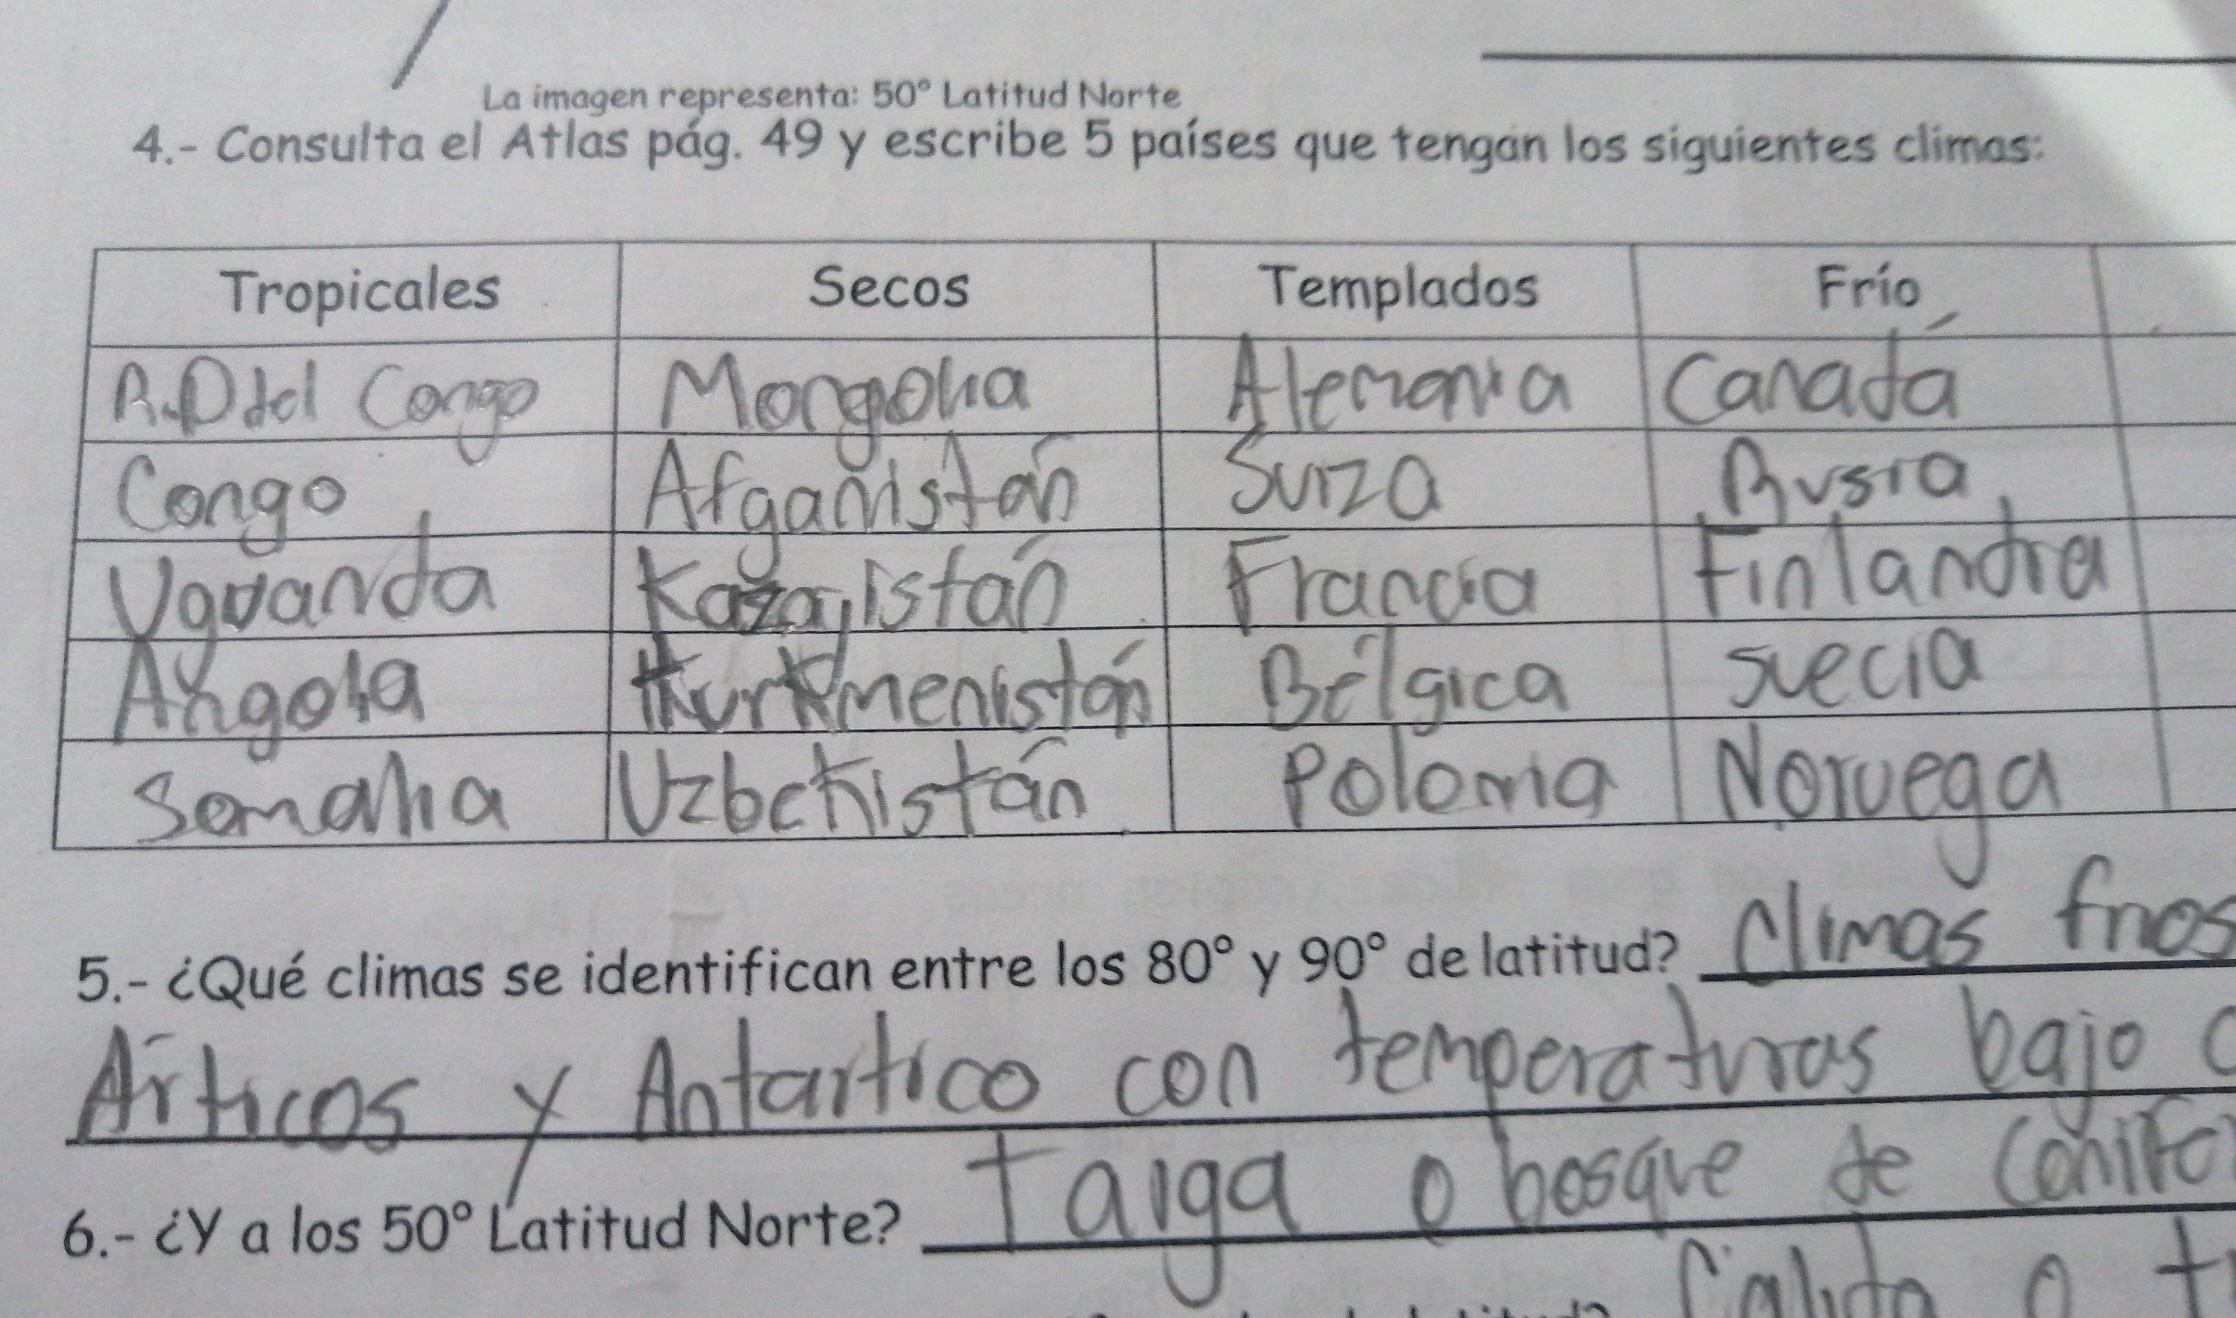 La imagen representa: 50° Latitud Norte
4.- Consulta el Atlas pág. 49 y escribe 5 países que tengan los siguientes climas:
Tropicales Secos Templados Frío
R.D del Congo Mongolia Alemania Canadá
Congo Afganistán Suiza Rusia
Uguanda Kazajistán Francia Finlandia
Angola Turkmenistán Bélgica suecia
Somalia Uzbekistán Polonia Noruega
5.- ¿Qué climas se identifican entre los 80° y 90° de latitud? Climas frios
Árticos y Antartico con temperaturas bajo
Taiga o bosque de conifo
6.- ¿Y a los 50° Latitud Norte?
Calido o